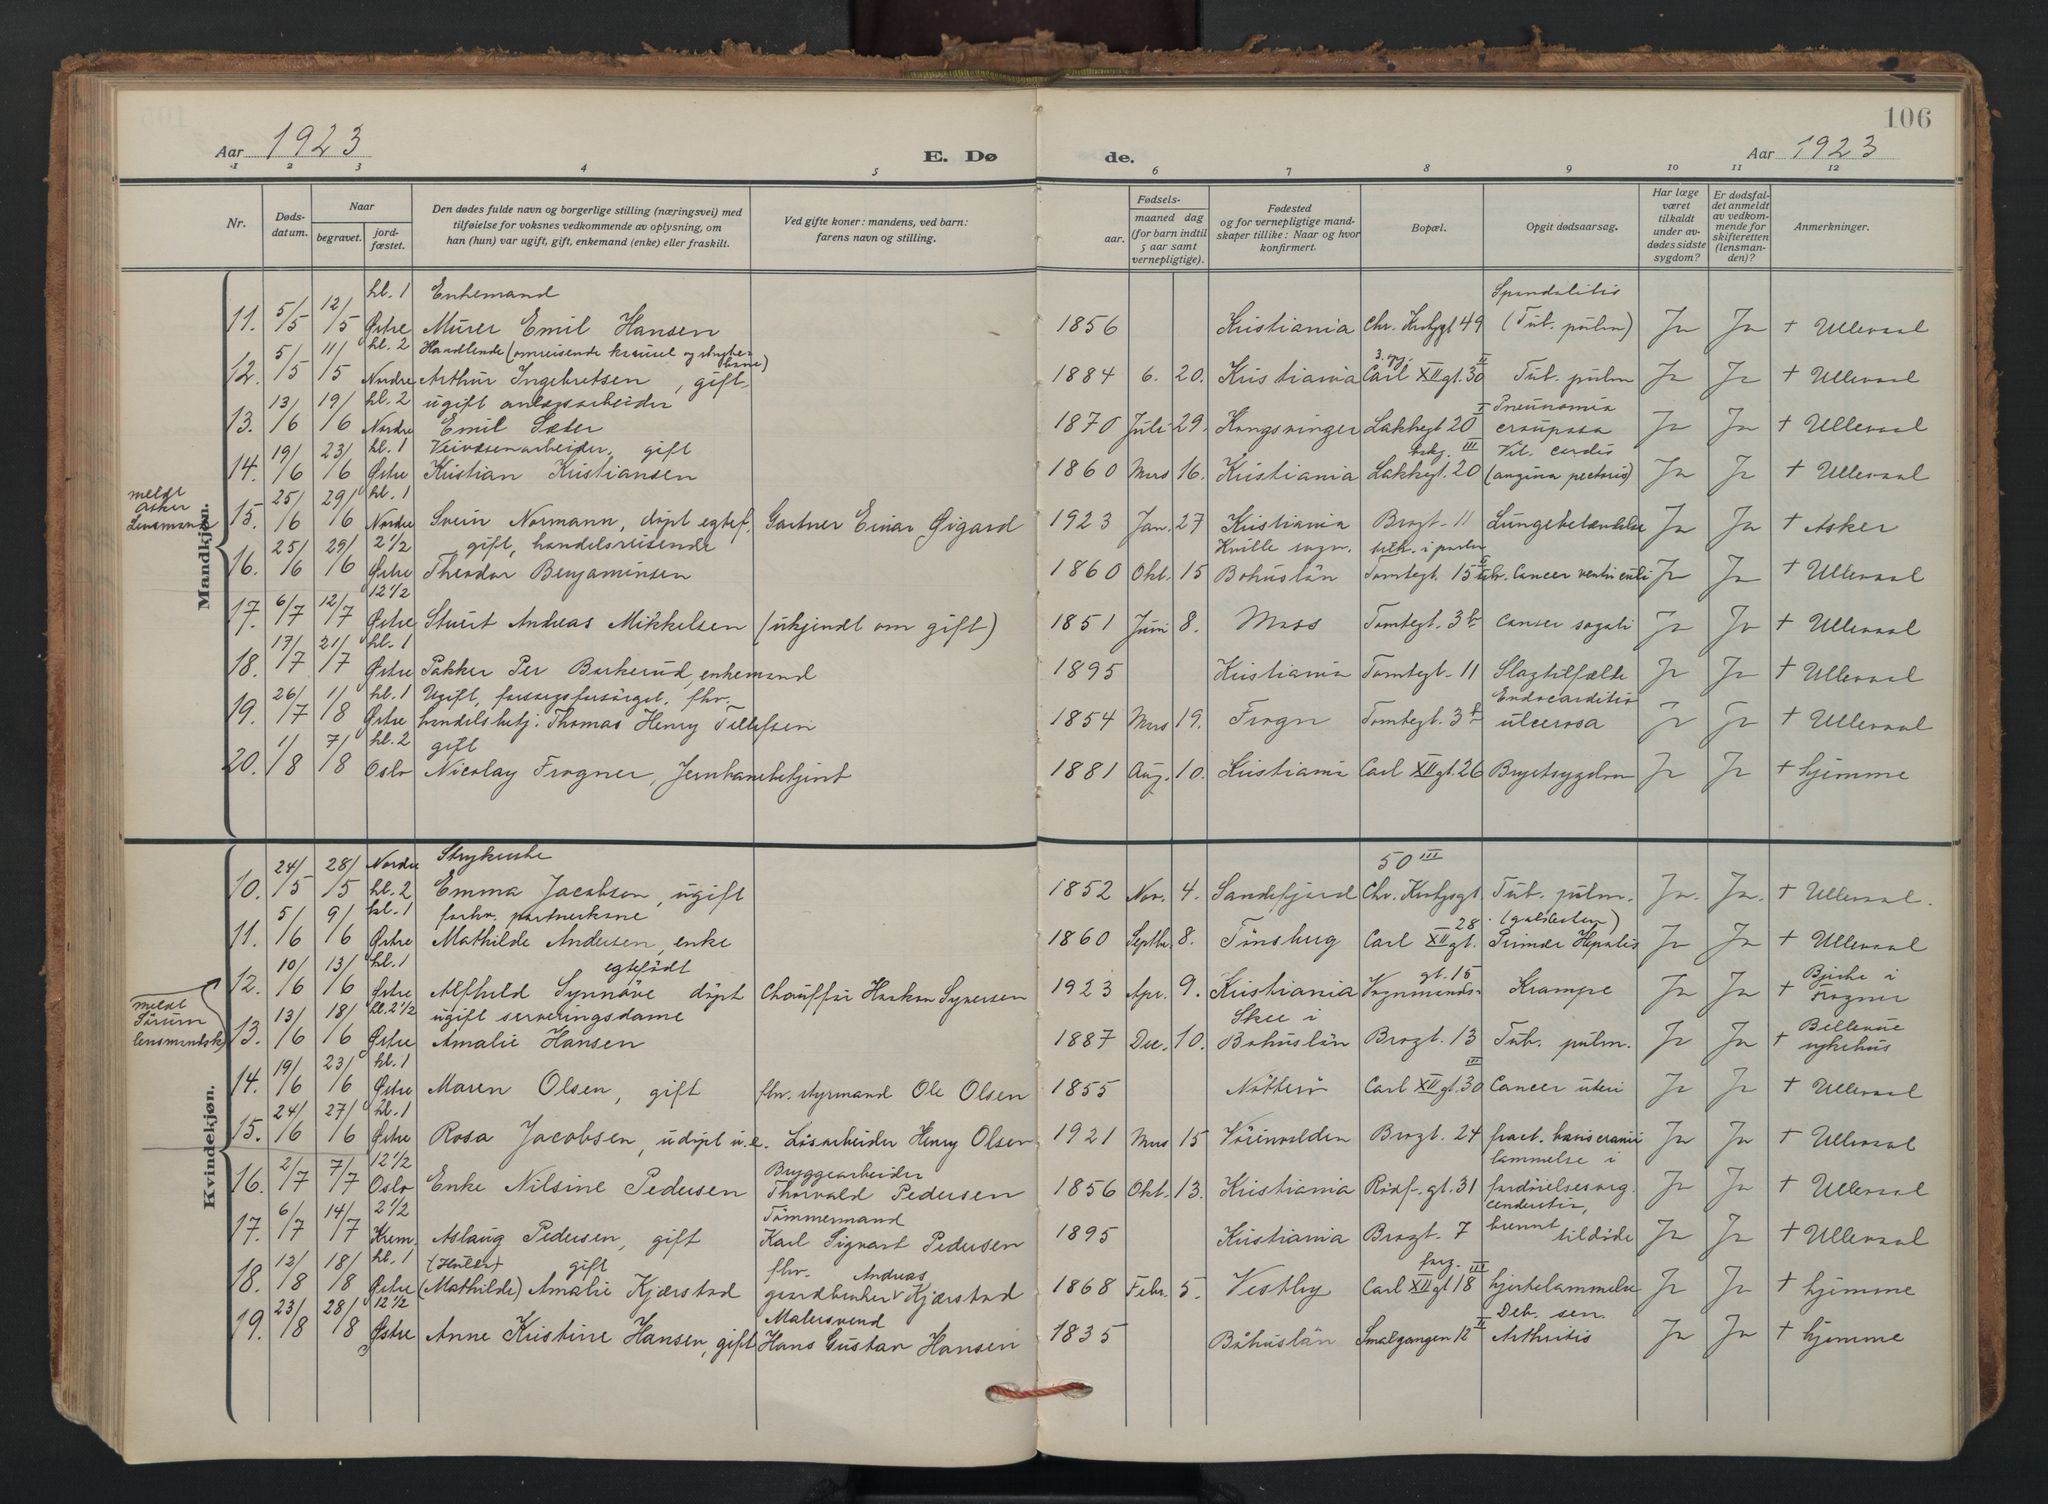 106
Aar 1923
E. Dø
de.
Aar 1923
1 2 3 4 5 6 7 8 9 10 11 12
Nr.
Døds-
datum.
Naar
begravet.
jord-
fæstet.
Den dødes fulde navn og borgerlige stilling (næringsvei) med
tilføielse for voksnes vedkommende av oplysning, om
han (hun) var ugift, gift, enkemand (enke) eller fraskilt.
Ved gifte koner: mandens, ved barn:
farens navn og stilling.
Fødsels-
aar.
maaned dag
(for barn indtil
5 aar samt
vernepligtige).
Fødested
og for vernepligtige mand-
skaper tillike: Naar og hvor
konfirmert.
Bopæl.
Opgit dødsaarsag.
Har læge
været
tilkaldt
under av-
dødes sidste
sygdom?
Er dødsfal-
det anmeldt
av vedkom-
mende for
skifteretten
(lensman-
den)?
Anmerkninger.
Mandkjøn.
kl. 1 Enkemand
11. 5/5 12/5 Østre Murer Emil Hansen 1856 Kristiania Chr. Krohgsgt 49 (Tub. pulm) Ja Ja + Ullevaal
kl. 2 Handlende (omreisende
12. 5/5 11/5 Nordre Arthur Ingebretsen, gift 1884 6. 20. Kristiania Carl XII gt. 30 II Tub. pulm Ja Ja + Ullevaal
kl. 2 ugift anlægsarbeider Pneunomia
13. 13/6 19/6 Nordre Emil Sæter 1870 Juli 29. Kongsvinger Lakkegt 20 crouposa Ja Ja + Ullevaal
kl. 1 Veivæsenarbeider, gift Vit. cordis
14. 19/6 23/6 Østre Kristian Kristiansen 1860 Mars 16. Kristiania Lakkegt. 20 (angina pectoris) Ja Ja + Ullevaal
meldt
Asker
Lensmand
kl. 1
15. 25/6 29/6 Nordre Svein Normann, døpt egtef. Gartner Einar Øigard 1923 Jan. 27 Kristiania Brogt. 11 Lungebetændelse Ja Ja + Asker
2 1/2 gift, handelsreisende Kville sogn.
16. 25/6 29/6 Østre Theodor Benjaminsen 1860 Okt. 15 Bohuslän Tomtegt. 15 Cancer ventriculi Ja Ja + Ullevaal
12 1/2
17. 6/7 12/7 Østre Stuert Andreas Mikkelsen (ukjendt om gift) 1851 Juni 8. Moss Tomtegt. 3b Ja Ja + Ullevaal
kl. 1
18. 17/7 21/7 Østre Pakker Per Barkerud, enkemand 1895 Kristiania Tomtegt. 11 Slagtilfælde Ja Ja + Ullevaal
kl. 1 Ugift, forsorgsforsørget, fhv. Endocarditis
19. 26/7 1/8 Østre handelsbetj. Thomas Henry Tellefsen 1854 Mars 19. Frogn Tomtegt. 3b ulcerosa Ja Ja + Ullevaal
kl. 2 gift
20. 1/8 7/8 Oslo Nicolay Frogner, Jernbanebetjent 1881 Aug. 10. Kristiania Carl XII gt. 26 Brystsygdom Ja Ja + hjemme
Kvindekjøn.
Strykerske 50 III
10. 24/5 28/5 Nordre kl. 2 Emma Jacobsen, ugift 1852 Nov. 4. Sandefjord Chr. Krohgsgt Tub. pulm. Ja Ja + Ullevaal.
kl. 1 28
11. 5/6 9/6 Østre Mathilde Andersen, enke 1860 Septbr 8. Tønsberg Carl XII gt. Hepatis Ja Ja + Ullevaal
kl. 1 egtefødt gt. 15 Bjerke i
12. 10/6 13/6 Østre Alfhild Synnöve døpt Chauffør Haakon Syversen 1923 Apr. 9. Kristiania Vognmands- Krampe Ja Ja + Frogner
meldt
Sørum
lensmandsk.
kl. 2 1/2 ugift serveringsdame Skee i Bellevue
13. 13/6 18/6 Østre Amalie Hansen 1887 Dec. 10. Bohuslän Brogt. 13 Tub. pulm. Ja Ja + sykehus
kl. 1 III
14. 19/6 23/6 Østre Maren Olsen, gift fhv. styrmand Ole Olsen 1855 Nötterö Carl XII gt. 30 Cancer uteri Ja Ja + Ullevaal
kl. 1
15. 24/6 27/6 Østre Rosa Jacobsen, udøpt u.e. Løsarbeider Henry Olsen 1921 Mars 15 Brogt. 24 Ja Ja + Ullevaal
12 1/2 Bryggearbeider lammelse i
16. 2/7 7/7 Oslo Enke Nilsine Pedersen Thorvald Pedersen 1856 Okt. 13. Kristiania Rødf. gt. 31 Ja Ja + Ullevaal
2 1/2 Tømmermand
17. 6/7 14/7 Krem. Aslaug Pedersen, gift Karl Sigvart Pedersen 1895 Kristiania Brogt. 7 brennt tildøde Ja Ja + Ullevaal
kl. 1 gift fhv. Andreas III
18. 12/8 18/8 Østre (Mathilde) Amalie Kjærstad Kjærstad 1868 Febr. 5. Vestby Carl XII gt 18 hjertelammelse Ja Ja + hjemme
12 1/2 Malersvend II Deb. sen.
19. 23/8 28/8 Østre Anne Kristine Hansen, gift Hans Gustav Hansen 1835 Båhuslän Smalgangen 12 Arthritis Ja Ja + hjemme